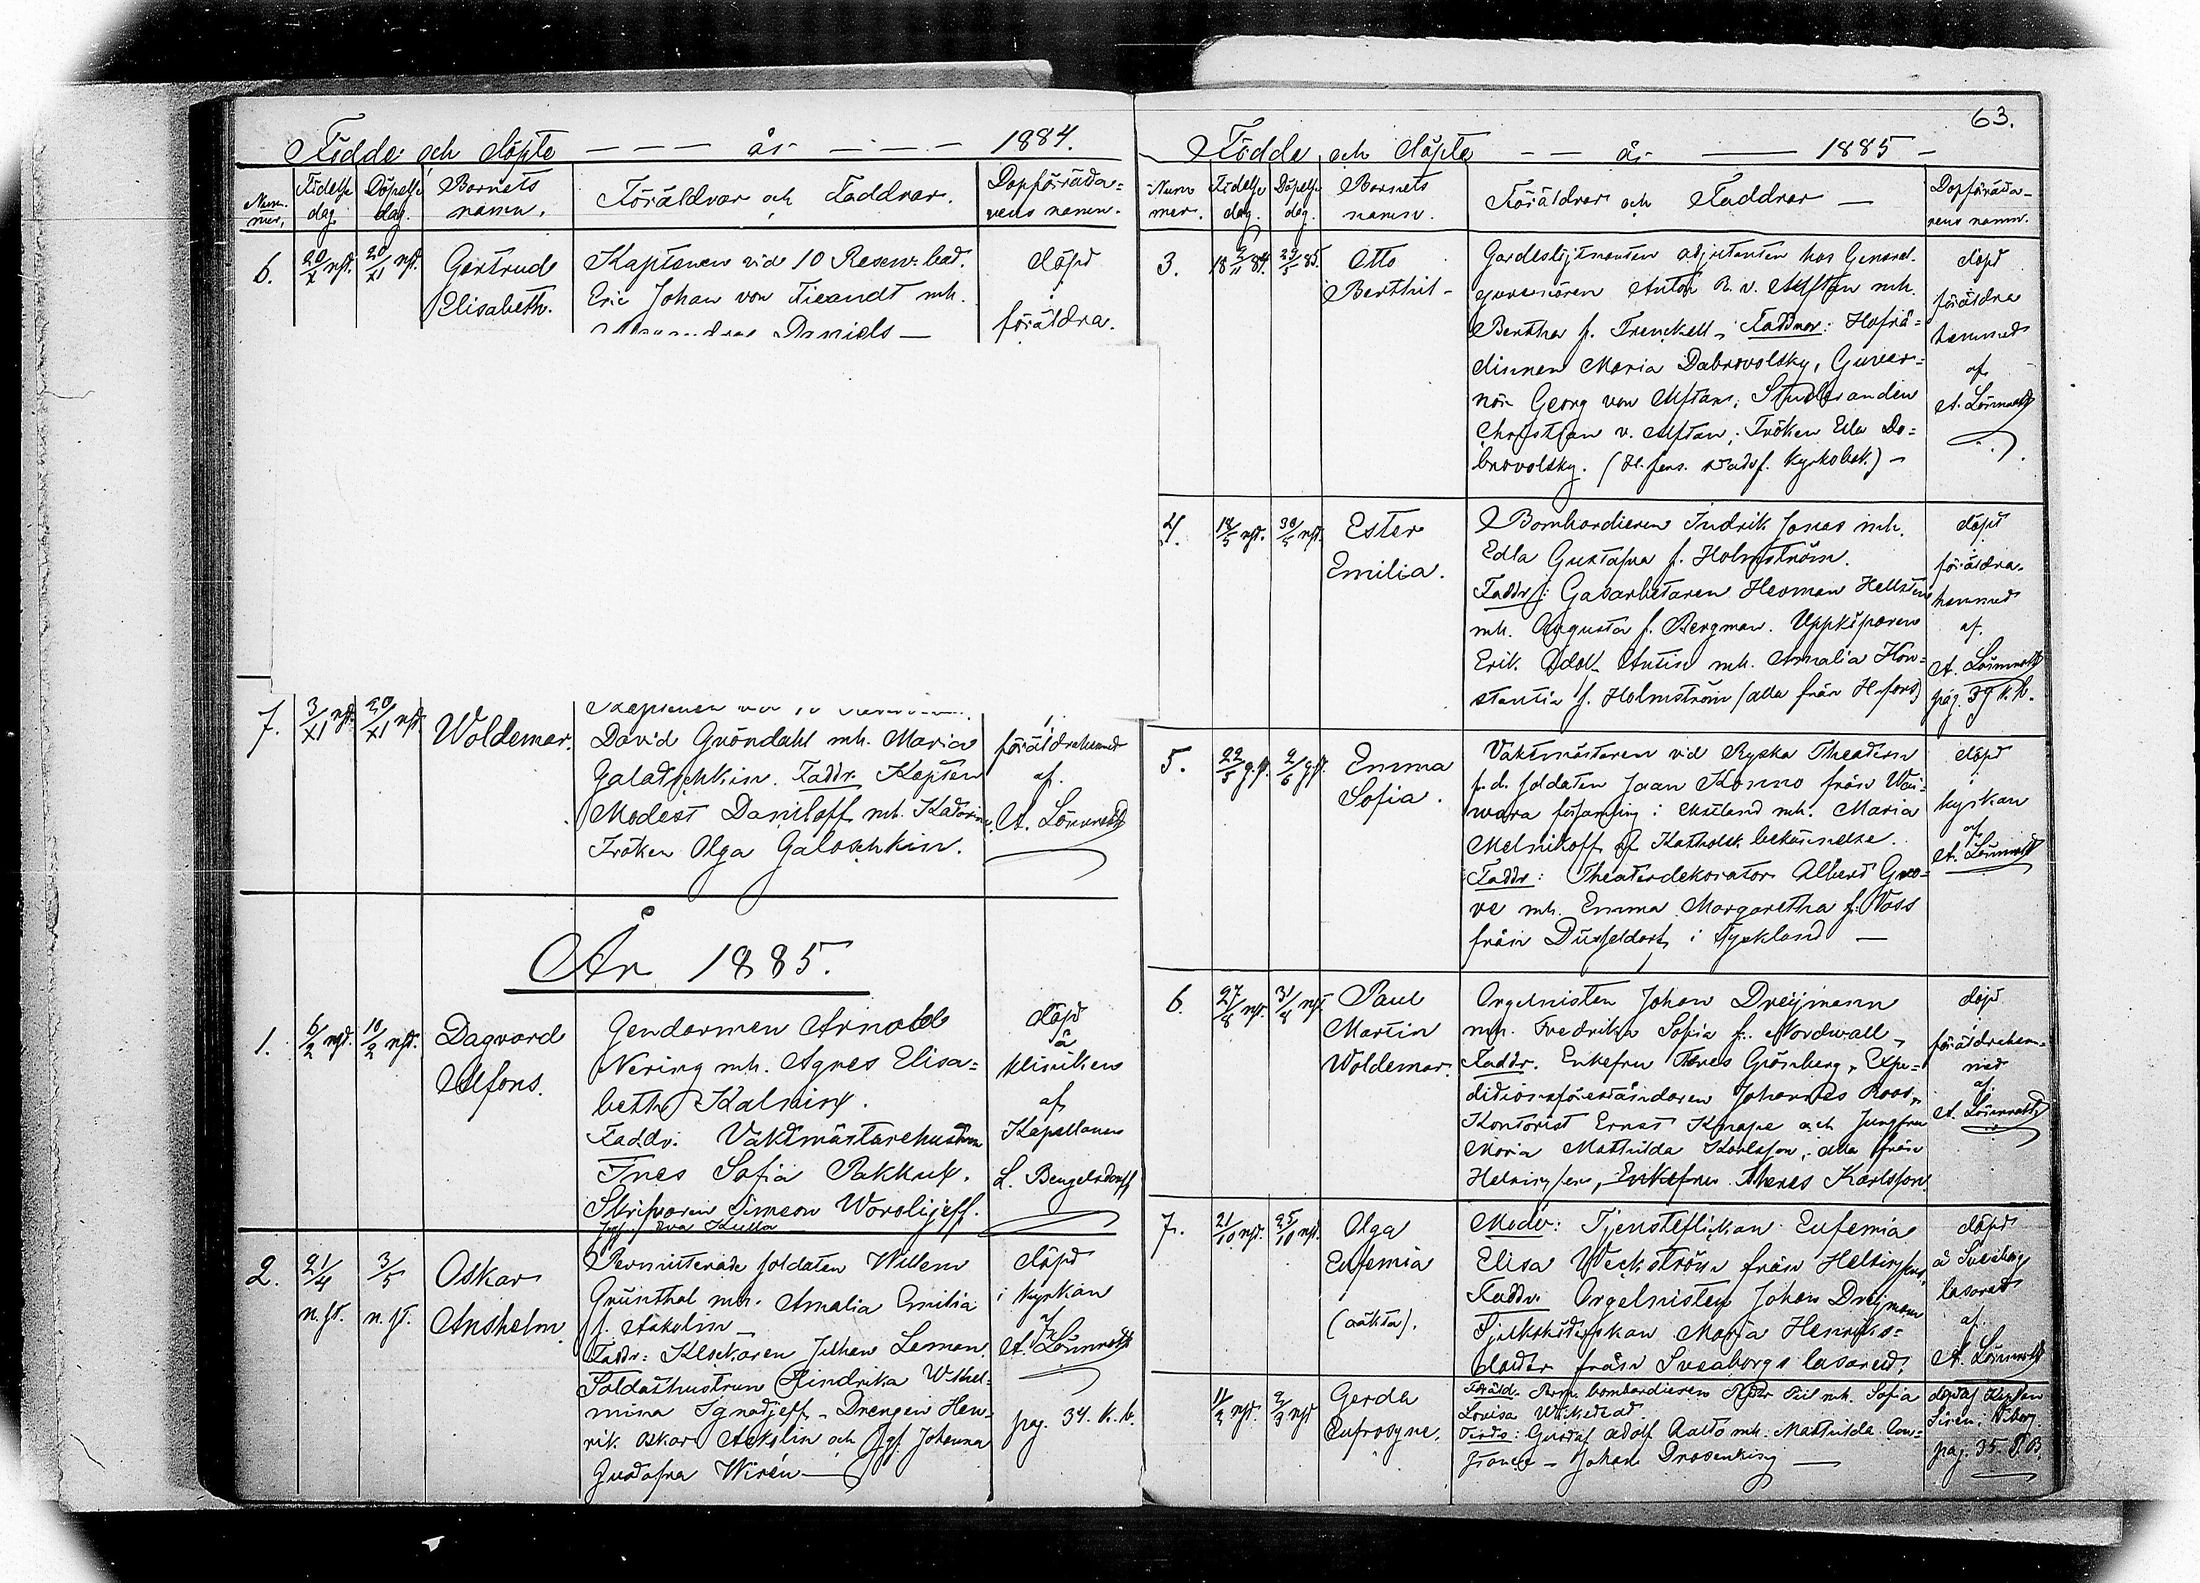 Födde och döpte — — — år — — — 1884.
Num-
mer.
Födelse
dag.
Döpelse
dag.
Barnets
namn.
Föräldrar och Faddrar.
Dopförätta=
rens namn.
6.
20/X nst.
20/XI nst.
Gertrud
Elisabeth.
Kaptenen vid 10 Reserv. bat.
Eric Johan von Fieandt mh.
Daniels —
döpd
i
föräldra.
7.
3/XI nst.
20/XI nst.
Woldemar.
David Gröndahl mh. Maria
Galoschkin. Faddr. Kapten
Modest Daniloff mh. Katarina
Fröken Olga Galoschkin.
föräldrahemmet
af.
A. Lönnroth
År 1885.
1.
6/2 nst.
10/2 nst.
Dagvard
Alfons.
Gendarmen Arnold
Nering mh. Agnes Elisa=
beth Kalning.
Faddr. Vaktmästarehustrun
Ines Sofia Pakkul.
Skrifvaren Simeon Worobjeff.
Jgf Eva Kulla
döpt
å
kliniken
af
Kapellanen
L. Bengelsdorff
2.
21/4
n.st.
3/5
n.st.
Oskar
Anshelm.
Permitterade soldaten Willem
Grünthal mh. Amalia Emilia
f. Askolin —
Faddr: Klockaren Johan Leman.
Soldathustrun Hindrika Wilhel=
mina Ignatjeff — Drengen Hen=
rik Oskar Askolin och Jgf. Johanna
Gustafva Wirén —
döpt
i kyrkan
af
A. Lönnroth
pag. 34. K. b.
63.
Födde och döpte — — år — 1885 —
Num
mer.
Födelse
dag.
Döpelse
dag.
Barnets
namn.
Föräldrar och Faddrar —
Dopförätta-
rens namn.
3.
18 2/11 84.
23/5 85.
Otto
Berthil —
Gardeslöjtnanten adjutanten hos General.
guvernören Anton R. v. Alftan mh.
Bertha f. Frenckell, Faddrar: Hofrå=
dinnan Maria Dabrovolsky, Guver=
nör Georg von Alftan, Studeranden
Christian v. Alftan, Fröken Ella Do=
brovolsky. (H.fors. stadsf. kyrkobok.) —
döpt
i
föräldra
hemmet
af
A. Lönnroth
4.
18/5 nst.
30/5 nst.
Ester
Emilia.
Bombardieren Indrik Jonas mh.
Edla Gustafva f. Holmström.
Faddr: Gasarbetaren Herman Hellsten
mh. Augusta f. Bergman. Uppköparen
Erik Adolf Antin mh. Amalia Kon=
stantia f. Holmström (alla från H.fors)
döpt
i
föräldra-
hemmet
af.
A. Lönnroth
pag. 39 K. b.
5.
22/5 g.st.
2/6 g.st.
Emma
Sofia.
Vaktmästaren vid Ryska Theatern
f.d. soldaten Jaan Konno från Wai=
wara församling i Estland mh. Maria
Melnikoff af Katholsk bekännelse.
Faddr: Theaterdekorator Albert Gro=
ve mh. Emma Margaretha f. Voss
från Düsseldorf, i Tyskland —
döpt
i
kyrkan
af
A. Lönnroth
6.
27/8 nst.
31/8 nst.
Paul
Martin
Woldemar.
Orgelnisten Johan Dreijmann
mh. Fredrika Sofia f. Nordwall,
Faddr. Enkefru Theres Grönberg, Expe=
ditionsföreståndaren Johannes Roos,
Kontorist Ernst Knape och Jungfru
Maria Mathilda Karlsson, alla från
Helsingfors, Enkefru Theres Karlsson.
döpt
i
föräldrahem=
met
af.
A. Lönnroth
7.
21/10 nst.
25/10 nst.
Olga
Eufemia
(oäkta).
Moder: Tjensteflickan Eufemia
Elisa Weckström från Helsingfors,
Faddr. Orgelnisten Johan Dreijmann
Sjuksköterskan Maria Henriks=
dotter från Sveaborgs lasarett.
döpt
å Sveaborgs
lasarett
af.
A. Lönnroth
Gerda
Eufrosyne.
Föräld. Perm. bombardieren Peter Piil mh. Sofia
Lovisa
Fadd: Gustaf Adolf Aalto mh. Mathilda
Johan
döpt af Kapten
pag. 35. P. B.